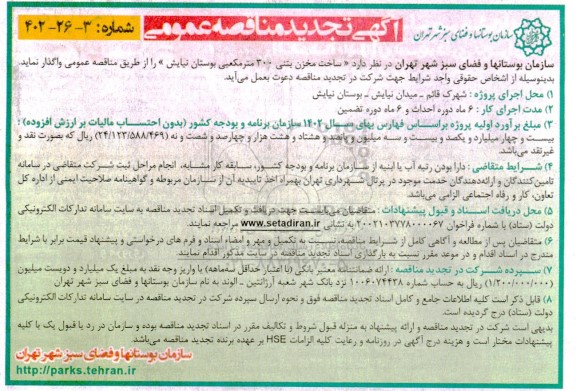 سازمان بوستانها و فضای سبز شهر تهران
آگهی تجدید مناقصه عمومی
شماره: ۳-۲۶-۴۰۲
سازمان بوستانها و فضای سبز شهر تهران در نظر دارد « ساخت مخزن بتنی ۳۰۰ مترمکعبی بوستان نیایش » را از طریق مناقصه عمومی واگذار نماید.
بدینوسیله از اشخاص حقوقی واجد شرایط جهت شرکت در تجدید مناقصه دعوت بعمل می‌آید.
۱) محل اجرای پروژه : شهرک قائم ـ میدان نیایش ـ بوستان نیایش
۲) مدت اجرای کار : ۶ ماه دوره احداث و ۶ ماه دوره تضمین
۳) مبلغ برآورد اولیه پروژه براساس فهارس بهای سال ۱۴۰۲ سازمان برنامه و بودجه کشور (بدون احتساب مالیات بر ارزش افزوده) :
بیست و چهار میلیارد و یکصد و بیست و سه میلیون و پانصد و هشتاد و هشت هزار و چهارصد و شصت و نه (۲۴/۱۲۳/۵۸۸/۴۶۹) ریال که بصورت نقد و
غیرنقد می‌باشد.
۴) شرایط متقاضی : دارا بودن رتبه آب یا ابنیه از سازمان برنامه و بودجه کشور، سابقه کار مشابه، انجام مراحل ثبت شرکت متقاضی در سامانه
تامین‌کنندگان و ارائه‌دهندگان خدمت موجود در پرتال شهرداری تهران بهمراه اخذ تاییدیه آن از سازمان مربوطه و گواهینامه صلاحیت ایمنی از اداره کل
تعاون، کار و رفاه اجتماعی الزامی می‌باشد.
۵) محل دریافت اسناد و قبول پیشنهادات : متقاضیان می‌بایست جهت دریافت و تکمیل اسناد تجدید مناقصه به سایت سامانه تدارکات الکترونیکی
دولت (ستاد) با شماره فراخوان ۲۰۰۲۱۰۳۷۷۸۰۰۰۰۶۷ به نشانی www.setadiran.ir مراجعه نمایند.
۶) متقاضیان پس از مطالعه و آگاهی کامل از شرایط مناقصه، نسبت به تکمیل و مهر و امضاء اسناد و فرم های درخواستی و پیشنهاد قیمت برابر با شرایط
مندرج در اسناد اقدام و در موعد مقرر نسبت به بارگذاری اسناد تجدید مناقصه در سایت مذکور اقدام نمایند.
۷) سپرده شرکت در تجدید مناقصه : ارائه ضمانتنامه معتبر بانکی (با اعتبار حداقل سه‌ماهه) یا واریز وجه نقد به مبلغ یک میلیارد و دویست میلیون
(۱/۲۰۰/۰۰۰/۰۰۰) ریال به حساب شماره ۱۰۰۶۰۷۴۴۳۸ نزد بانک شهر شعبه آرژانتین ـ الوند به نام سازمان بوستانها و فضای سبز شهر تهران
۸) قابل ذکر است کلیه اطلاعات جامع و کامل اسناد تجدید مناقصه فوق و نحوه ارسال سپرده شرکت در تجدید مناقصه در سایت سامانه تدارکات الکترونیکی
دولت (ستاد) درج گردیده است.
بدیهی است شرکت در تجدید مناقصه و ارائه پیشنهاد به منزله قبول شروط و تکالیف مقرر در اسناد تجدید مناقصه بوده و سازمان در رد یا قبول یک یا کلیه
پیشنهادات مختار است و هزینه درج آگهی در روزنامه و رعایت کلیه الزامات HSE بر عهده برنده تجدید مناقصه می‌باشد.
سازمان بوستانها و فضای سبز شهر تهران
http://parks.tehran.ir